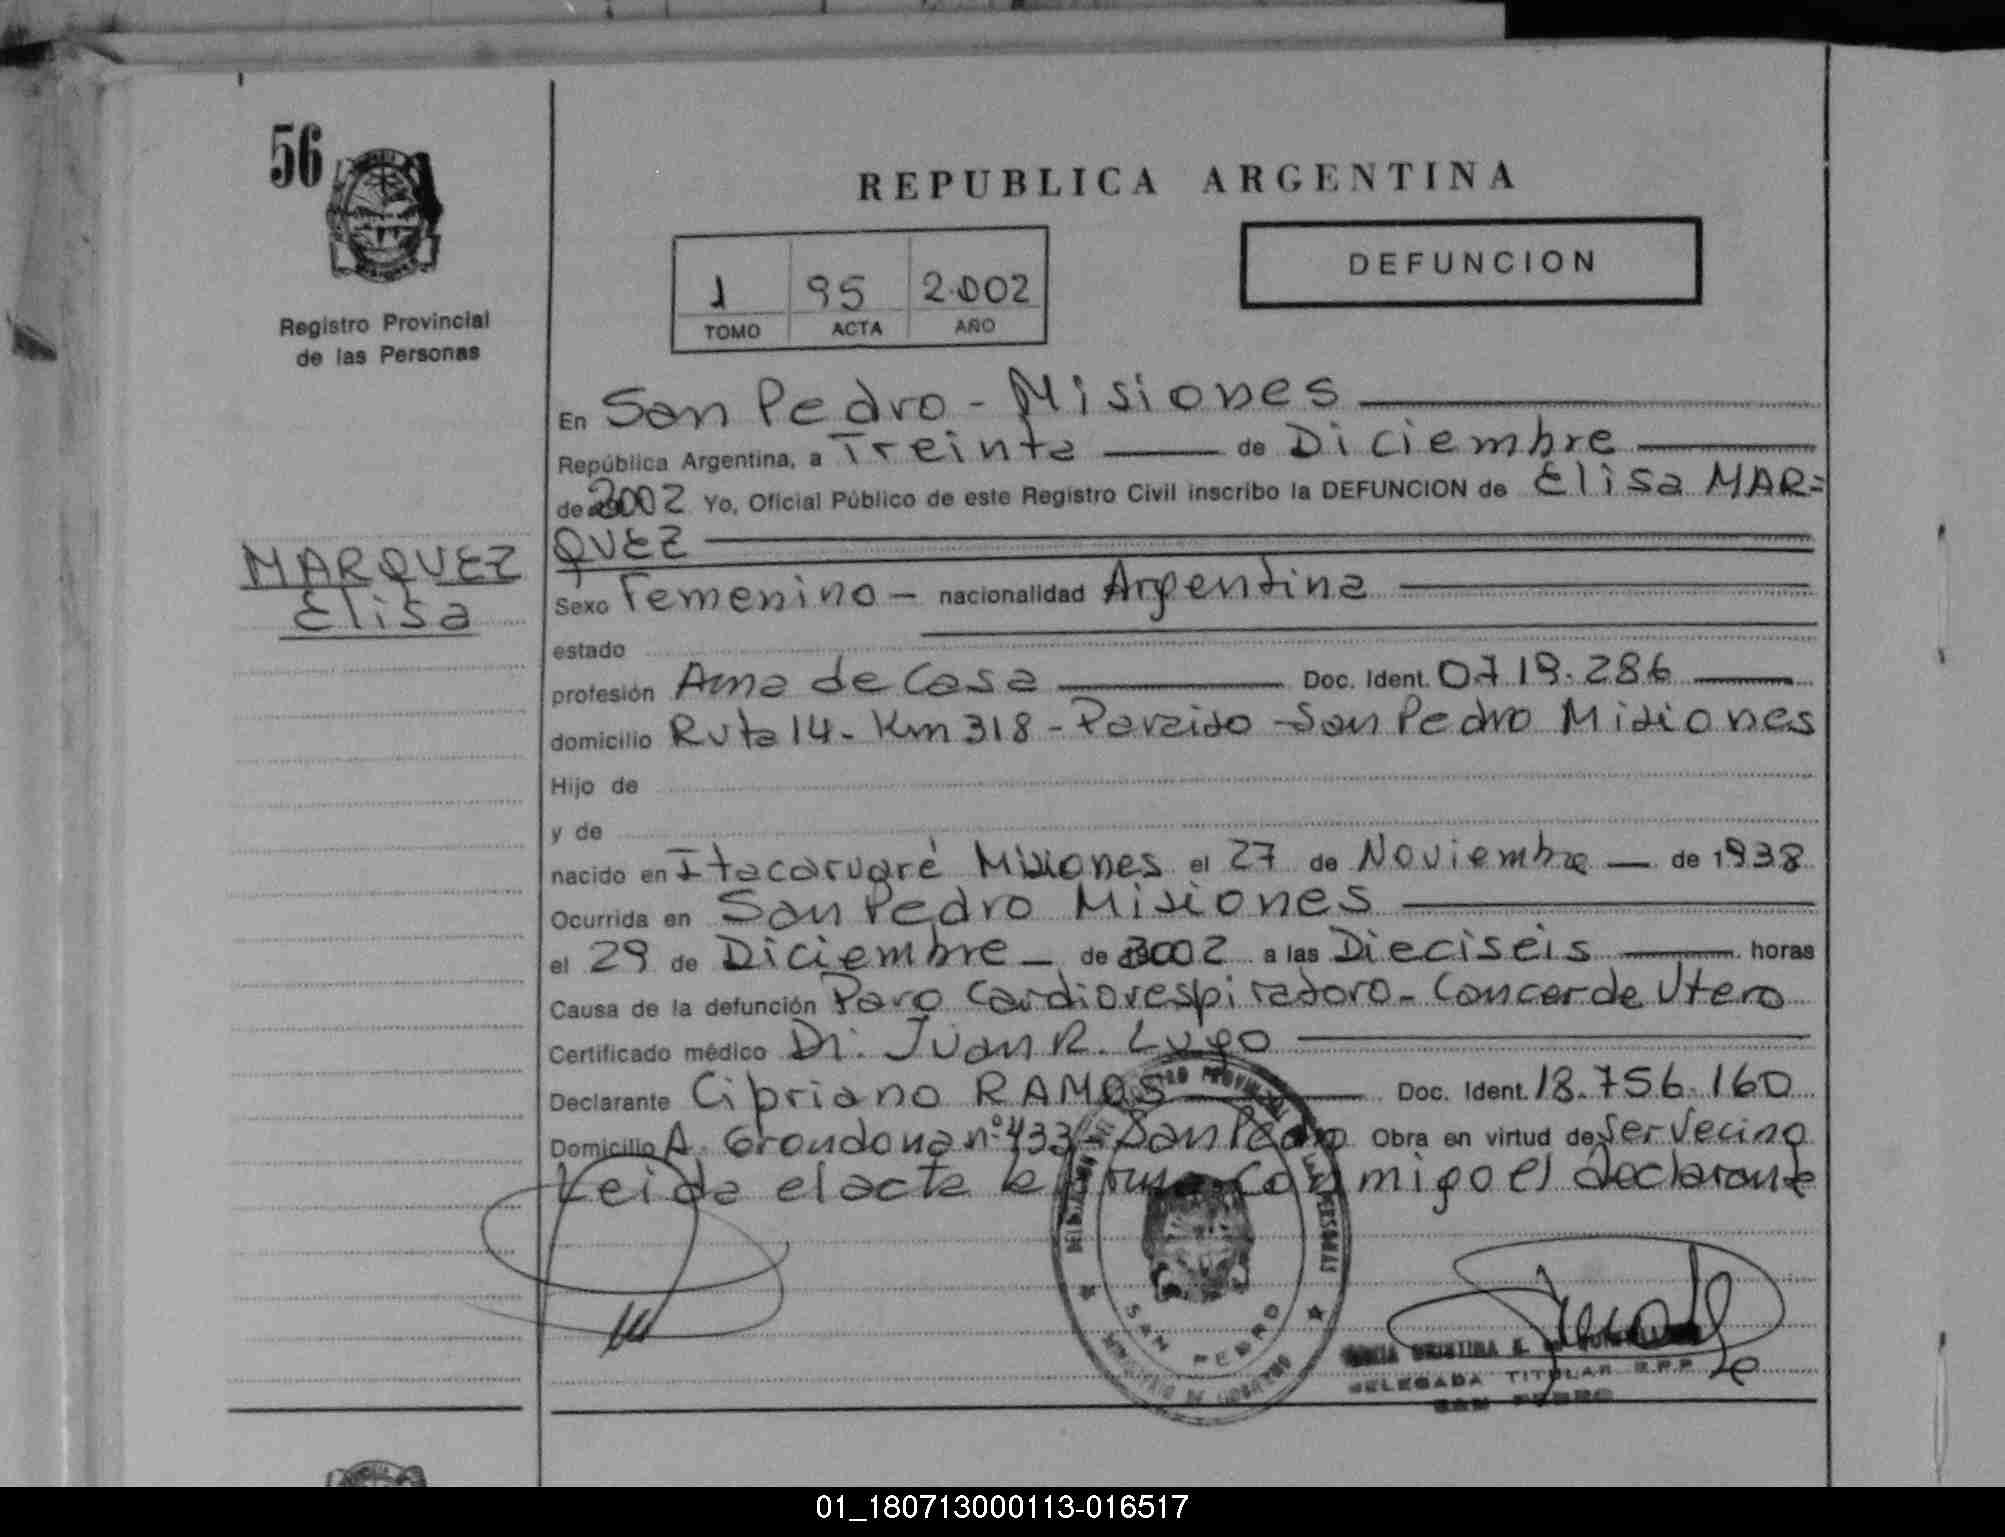 56
REPUBLICA ARGENTINA
DEFUNCION
1 95 2.002
TOMO ACTA AÑO
Registro Provincial
de las Personas
En San Pedro - Misiones
República Argentina, a Treinta de Diciembre
de 2002 Yo, Oficial Público de este Registro Civil inscribo la DEFUNCION de Elisa MAR=
QUEZ
MARQUEZ
Elisa
Sexo Femenino - nacionalidad Argentina
estado
profesión Ama de Casa Doc. Ident. 0719.286
domicilio Ruta 14 - Km 318 - Paraiso - San Pedro Misiones
Hijo de
y de
nacido en Itacaruaré Misiones el 27 de Noviembre de 1938
Ocurrida en San Pedro Misiones
el 29 de Diciembre de 2002 a las Dieciséis horas
Causa de la defunción Paro Cardiorespiratoro - Cancer de Utero
Certificado médico Dr. Juan R. Lugo
Declarante Cipriano RAMOS Doc. Ident. 18.756.160
Domicilio A. Grondona nº 433 - San Pedro Obra en virtud de Ser Vecino
Leida el acta la firma conmigo el declarante
SAN PEDRO
DELEGADA TITULAR R.P.P.
SAN PEDRO
01_180713000113-016517